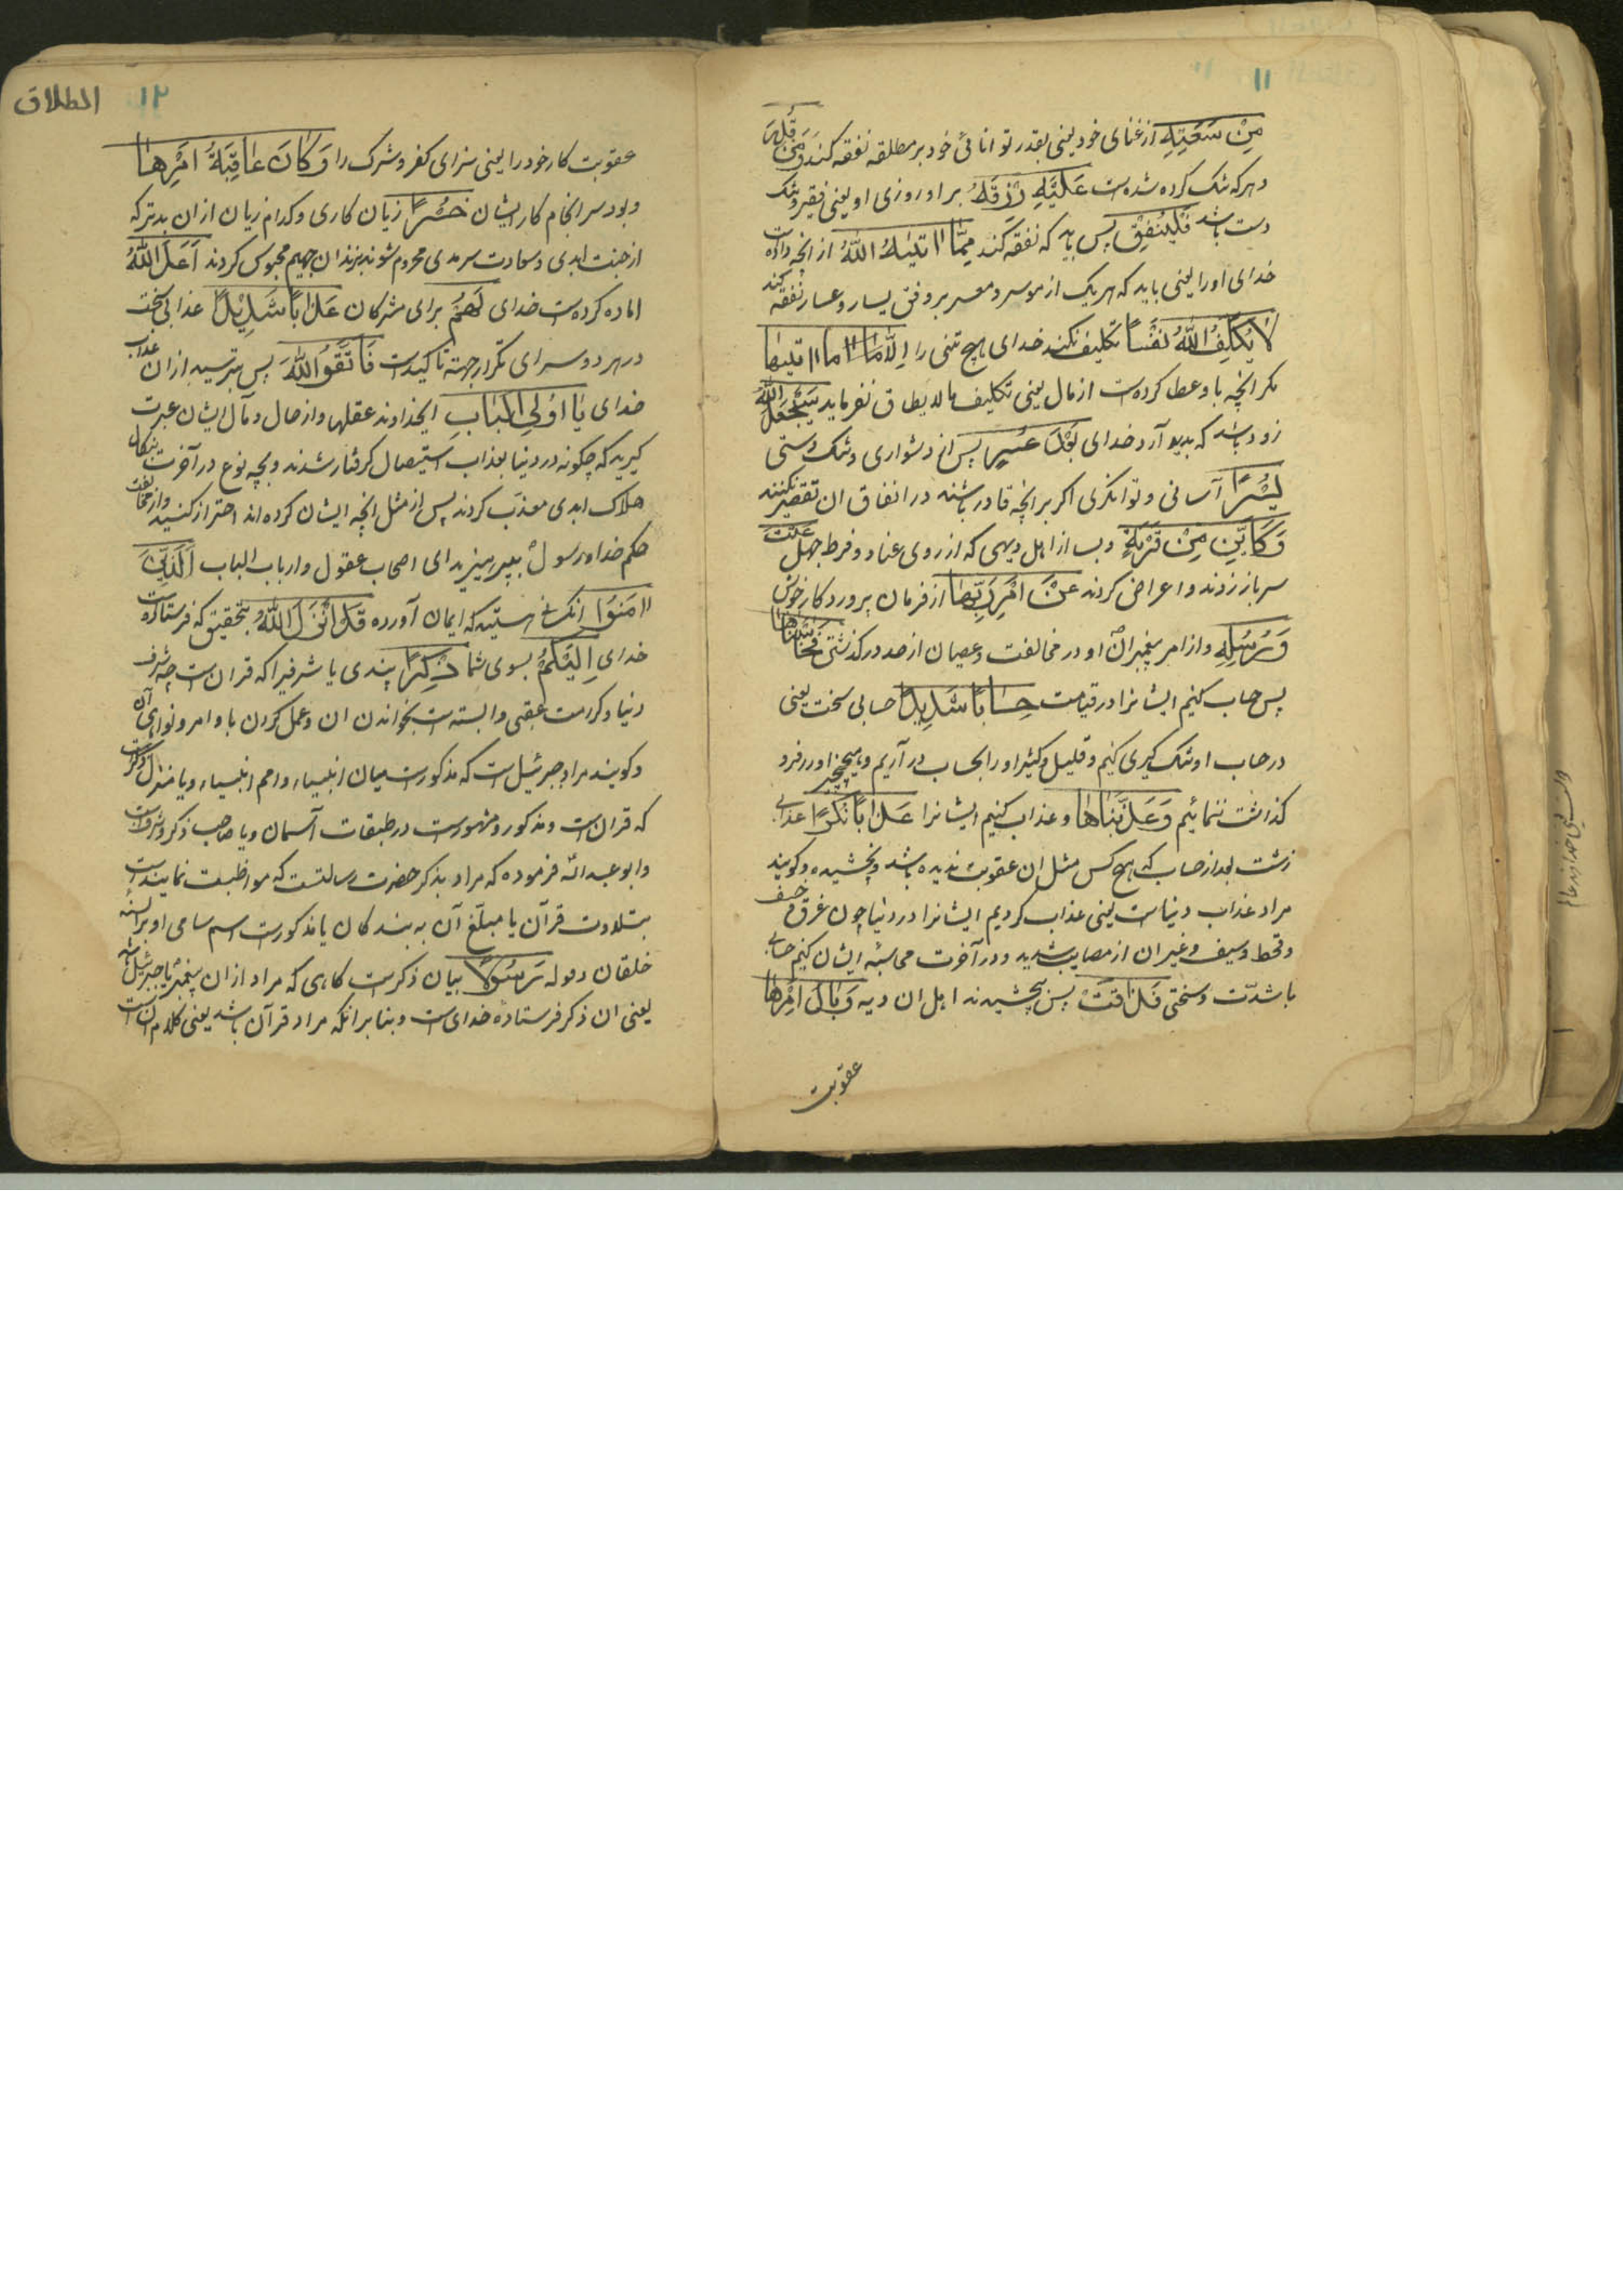 ۱۱
مِنْ سَعَتِهِ از غنای خود یعنی بقدر توانائی خود بر مطلقه نفقه کند وَمَنْ قُدِرَ
و هرکه تنک کرده شده است عَلَیْهِ رِزْقُهُ بر او روزی او یعنی فقیر و تنک
دست باشد فَلْیُنْفِقْ پس باید که نفقه کند مِمَّا اٰتیٰهُ اللّٰهُ از انچه داده است
خدای او را یعنی باید که هریک از موسر و معسر بر وفق یسار و عسار نفقه کند
لَا یُکَلِّفُ اللّٰهُ نَفْسًا تکلیف نکند خدای هیچ تنی را اِلَّا مَا اٰتیٰها
مکر انچه باو عطا کرده است از مال یعنی تکلیف مالا یطاق نفرماید سَیَجْعَلُ اللّٰهُ
زود باشد که بدید آرد خدای بَعْدَ عُسْرٍ پس از دشواری و تنک دستی
یُسْرًا آسانی و توانکری اکر بر انچه قادر باشند در انفاق ان تقصیر نکنند
وَکَاَیِّنْ مِنْ قَرْیَةٍ و بسا از اهل دیهی که از روی عناد و فرط جهل عَتَتْ
سر باز زدند و اعراض کردند عَنْ اَمْرِ رَبِّهَا از فرمان پروردکار خویش
وَرُسُلِهِ و از امر پیغمبران او در مخالفت و عصیان از حد درکذشتی فَحَاسَبْنَاهَا
پس حساب کنیم ایشانرا در قیامت حِسَابًا شَدِیدًا حسابی سخت یعنی
در حساب او تنک کیری کنیم و قلیل و کثیر او را بحساب در آریم و هیچ چیز او را فرو
کذاشت ننمائیم وَعَذَّبْنَاهَا و عذاب کنیم ایشانرا عَذَابًا نُکْرًا عذابی
زشت بعد از حساب که هیچ کس مثل ان عقوبت ندیده باشد و نچشیده و کویند
مراد عذاب دنیاست یعنی عذاب کردیم ایشانرا در دنیا چون غرق و خسف
و قحط و سیف و غیر ان از مصایب شدید و در آخرت محاسبه ایشان کنیم حسابی
با شدّت و سختی فَذَاقَتْ پس بچشیدند اهل ان دیه وَبَالَ اَمْرِهَا
عقوبت
۱۲ الطلاق
عقوبت کار خود را یعنی سزای کفر و شرک را وَکَانَ عَاقِبَةُ اَمْرِهَا
و بود سر انجام کار ایشان خُسْرًا زیان کاری و کدام زیان از ان بدتر که
از جنت ابدی و سعادت سرمدی محروم شوند و بزندان جهیم محبوس کردند اَعَدَّ اللّٰهُ
اماده کرده است خدای لَهُمْ برای مشرکان عَذَابًا شَدِیْدًا عذابی سخت
در هر دو سرای تکرار جهته تاکیدست فَاتَّقُوا اللّٰهَ پس بترسید از ان عذاب
خدای یَا اُولِی الْاَلْبَابِ ایخداوند عقلها و از حال و مآل ایشان عبرت
کیرید که چکونه در دنیا بعذاب استیصال کرفتار شدند و بچه نوع در آخرت بنکال
هلاک ابدی معذب کردند پس از مثل انچه ایشان کرده اند احتراز کنید و از مخالفت
حکم خدا و رسول بپرهیزید ای اصحاب عقول و ارباب الباب اَلَّذِیْنَ
اٰمَنُوا انکسانی هستید که ایمان آورده قَدْ اَنْزَلَ اللّٰهُ بتحقیق که فرستاده است
خدای اِلَیْکُمْ بسوی شما ذِکْرًا پندی یا شرفیرا که قران است چه شرف
دنیا و کرامت عقبی وابسته است بخواندن ان و عمل کردن باوامر و نواهی آن
و کویند مراد جبرئیل است که مذکورست میان انبیاء و امم انبیاء و یا منزل ذکرست
که قران است و مذکور و مشهورست در طبقات آسمان و یا صاحب ذکر و شرفست
و ابو عبد اللّٰه فرموده که مراد بذکر حضرت رسالتست که مواظبت نماینده است
بتلاوت قرآن یا مبلّغ آن به بندکان یا مذکورست اسم سامی او بر السنه
خلقان و قوله رَسُوْلًا بیان ذکرست کاهی که مراد از ان پیغمبر یا جبرئیل باشد
یعنی ان ذکر فرستاده خدای است و بنا بر انکه مراد قرآن باشد یعنی کلام ان است